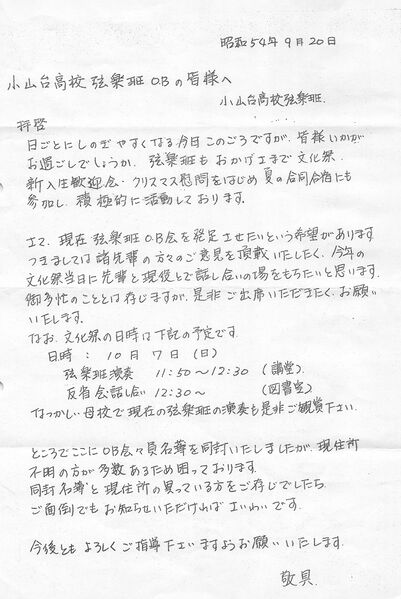 昭和54年9月20日
小山台高校弦楽班OBの皆様へ
小山台高校弦楽班.
拝啓
日ごとにしのぎやすくなる今日このごろですが、皆様いかが
お過ごしでしょうか。弦楽班もおかげさまで文化祭・
新入生歓迎会・クリスマス慰問をはじめ夏の合同合宿にも
参加し、積極的に活動しております。
さて、現在弦楽班OB会を発足させたいという希望があります。
つきましては諸先輩の方々のご意見を頂戴いたしたく、今年の
文化祭当日に先輩と現役とで話し合いの場をもちたいと思います。
御多忙のこととは存じますが、是非ご出席いただきたくお願い
いたします。
なお、文化祭の日時は下記の予定です
日時： 10月7日(日)
弦楽班演奏 11:50〜12:30 (講堂)
反省会話し合い 12:30〜 (図書室)
なつかしい母校で現在の弦楽班の演奏も是非ご観賞下さい。
ところでここにOB会々員名簿を同封いたしましたが、現住所
不明の方が多数あるため困っております。
同封名簿と現住所の異っている方をご存じでしたら、
ご面倒でもお知らせいただければさいわいです。
今後ともよろしくご指導下さいますようお願いいたします.
敬具.